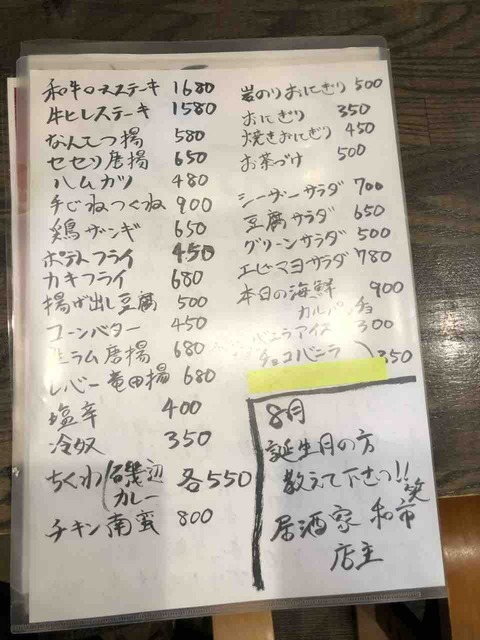 和牛ロースステーキ 1680
牛ヒレステーキ 1580
なんてつ揚 580
セセリ唐揚 650
ハムカツ 480
手ごねつくね 900
鶏ザンギ 650
ポテトフライ 450
カキフライ 680
揚げ出し豆腐 500
コーンバター 450
生ラム唐揚 680
レバー竜田揚 680
塩辛 400
冷奴 350
ちくわ/磯辺 各550
カレー
チキン南蛮 800
岩のりおにぎり 500
おにぎり 350
焼きおにぎり 450
お茶づけ 500
シーザーサラダ 700
豆腐サラダ 650
グリーンサラダ 500
エビマヨサラダ 780
本日の海鮮 900
カルパッチョ
バニラアイス 300
チョコバニラ 350
8月
誕生月の方
教えて下さっ!!
笑
居酒家 和市
店主